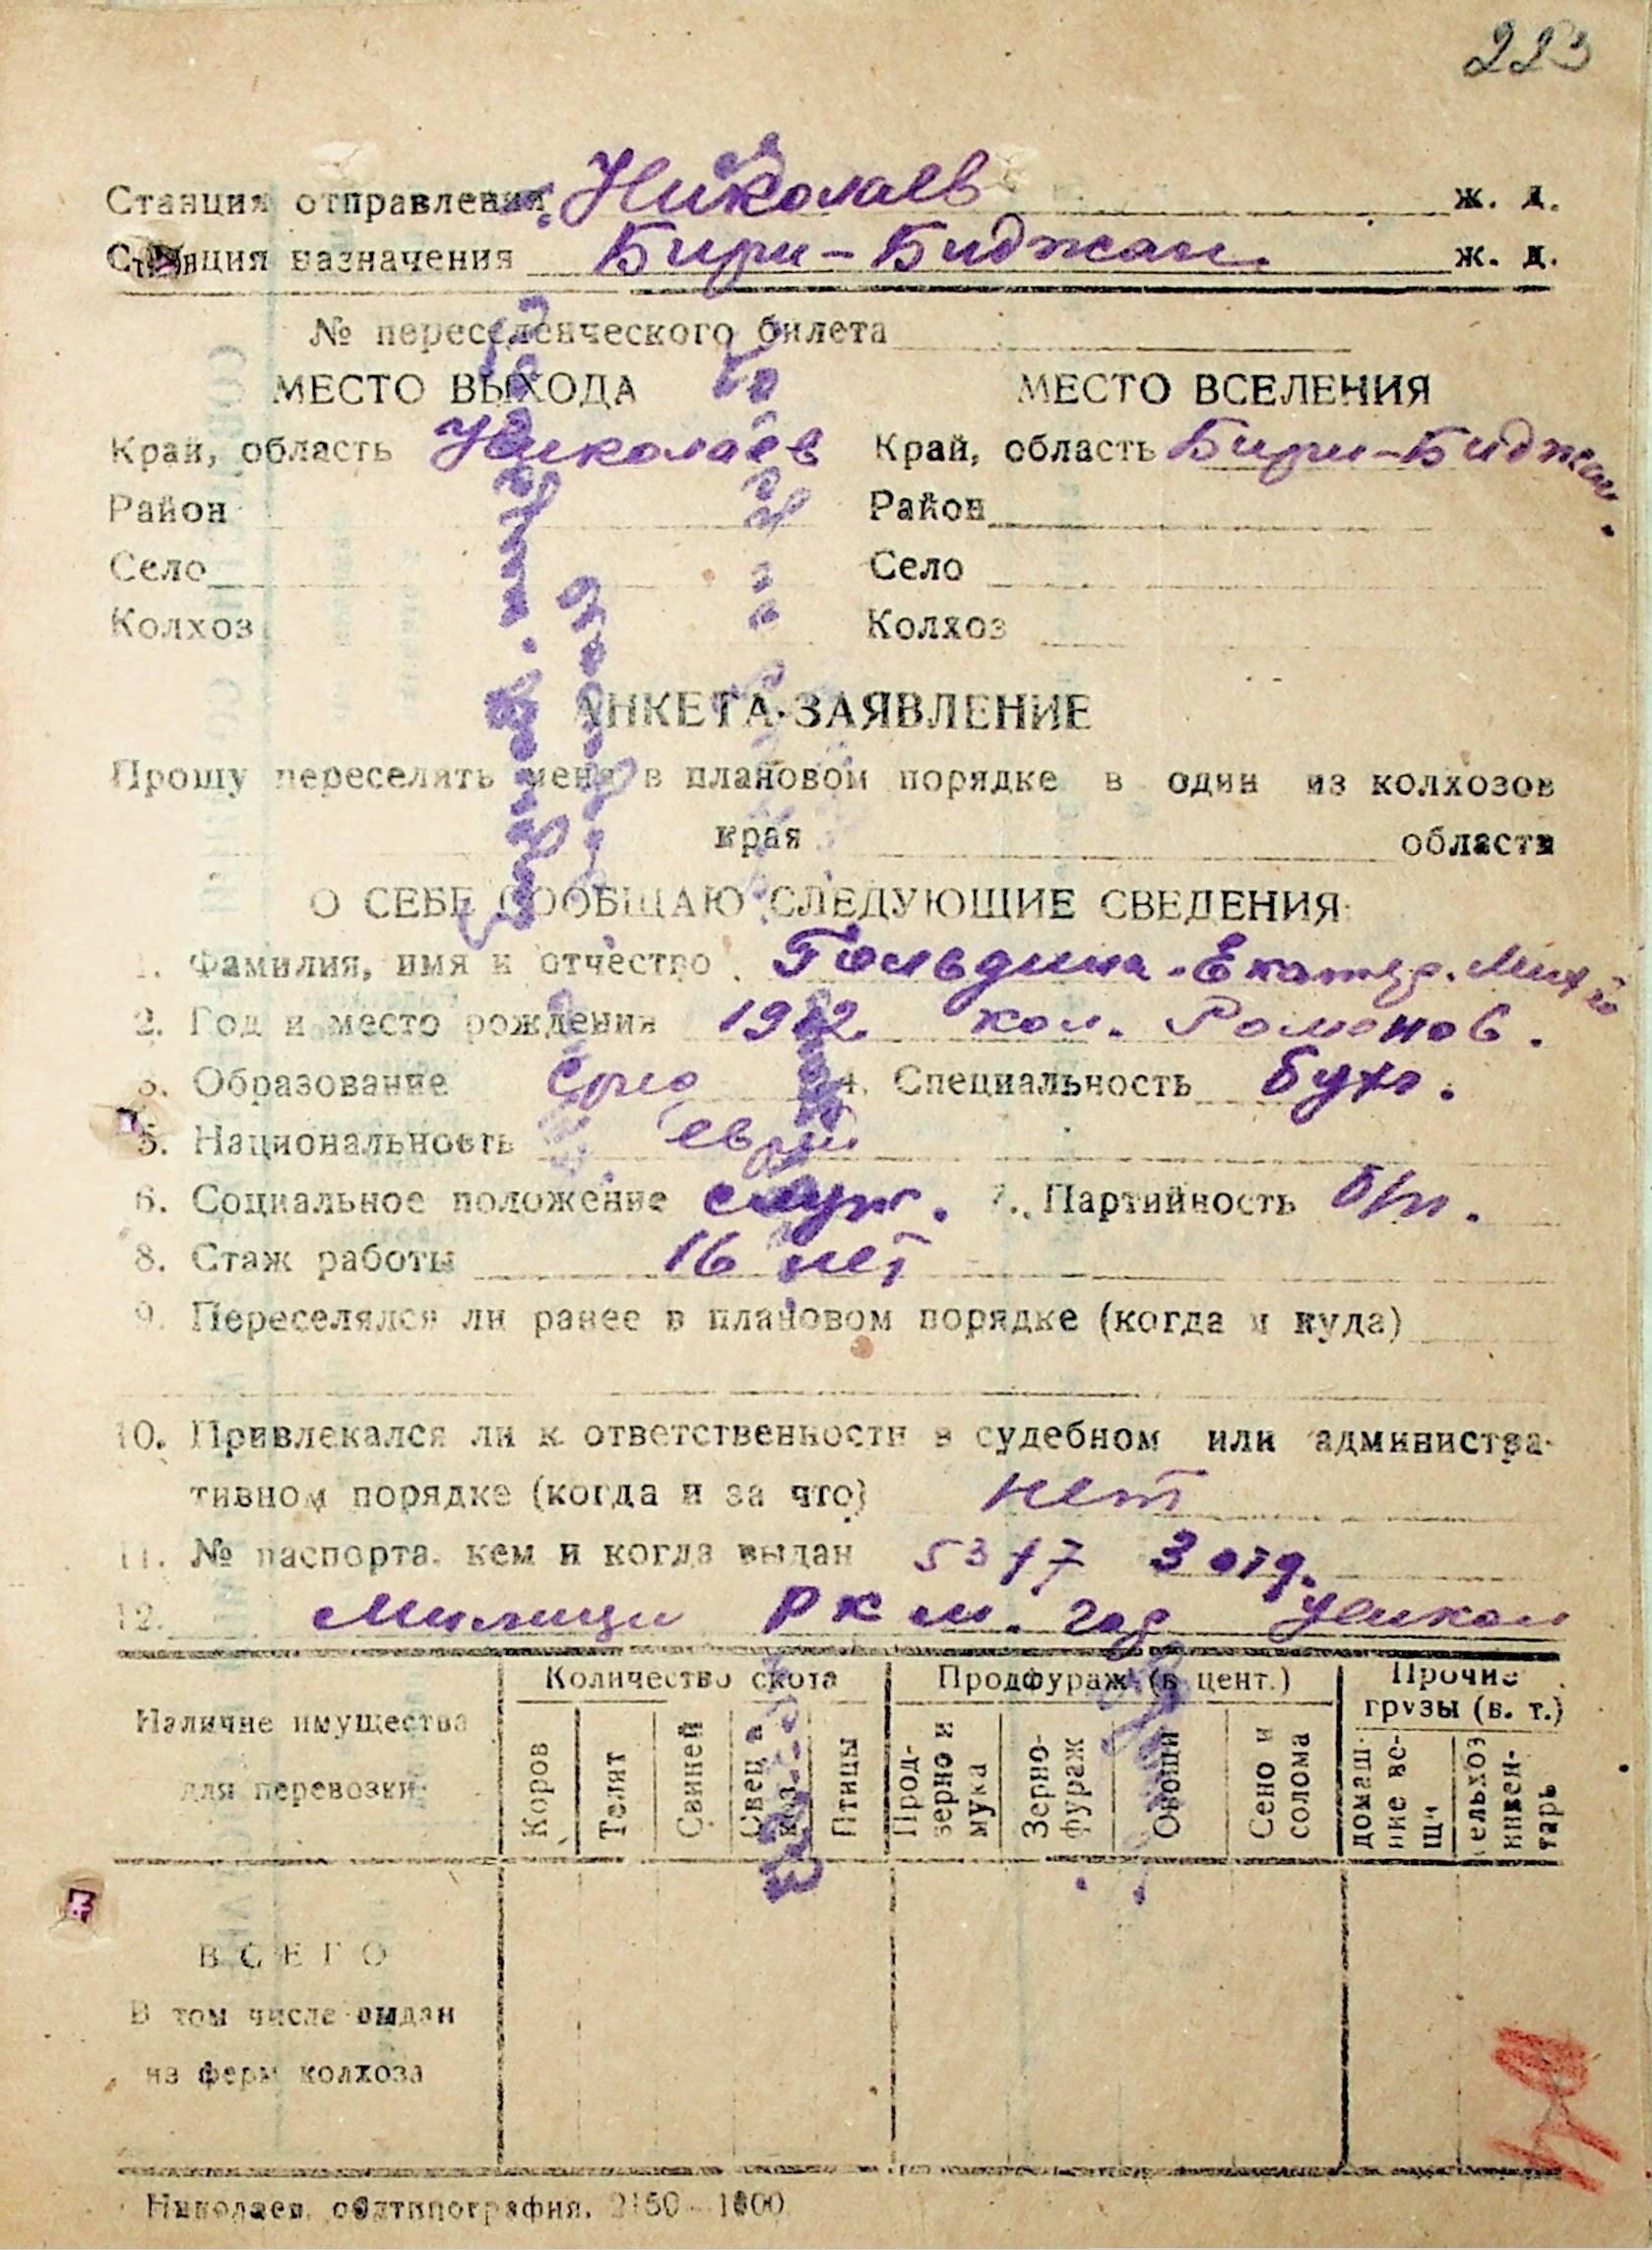 223
Станция отправления Николаев ж. д.
Станция назначения Бири-Биджан ж. д.
№ переселенческого билета
МЕСТО ВЫХОДА МЕСТО ВСЕЛЕНИЯ
Край, область Николаев Край, область Бири-Биджан.
Район Район
Село Село
Колхоз Колхоз
АНКЕТА-ЗАЯВЛЕНИЕ
Прошу переселять меня в плановом порядке в один из колхозов
края области
О СЕБЕ СООБЩАЮ СЛЕДУЮЩИЕ СВЕДЕНИЯ:
1. Фамилия, имя и отчество Гольдина Екатер. Мих
2. Год и место рождения 1912 кол. Романов.
3. Образование 4. Специальность бухг.
5. Национальность еврей
6. Социальное положение служ. 7. Партийность б/п.
8. Стаж работы 16 лет
9. Переселялся ли ранее в плановом порядке (когда и куда)
10. Привлекался ли к ответственности в судебном или администра-
тивном порядке (когда и за что) нет
11. № паспорта, кем и когда выдан 5317 3 отд.
12. Милици РКМ. гор Никол
Наличие имущества для перевозки
Количество скота Продфураж (в цент.) Прочие грузы (в. т.)
Коров Телят Свиней Овец и коз Птицы Прод-зерно и мука Зерно-фураж Овощи Сено и солома домаш-ние ве-щи сельхоз инвен-тарь
ВСЕГО
В том числе выдан
из ферм колхоза
Николаев, облтипография. 2150—1000